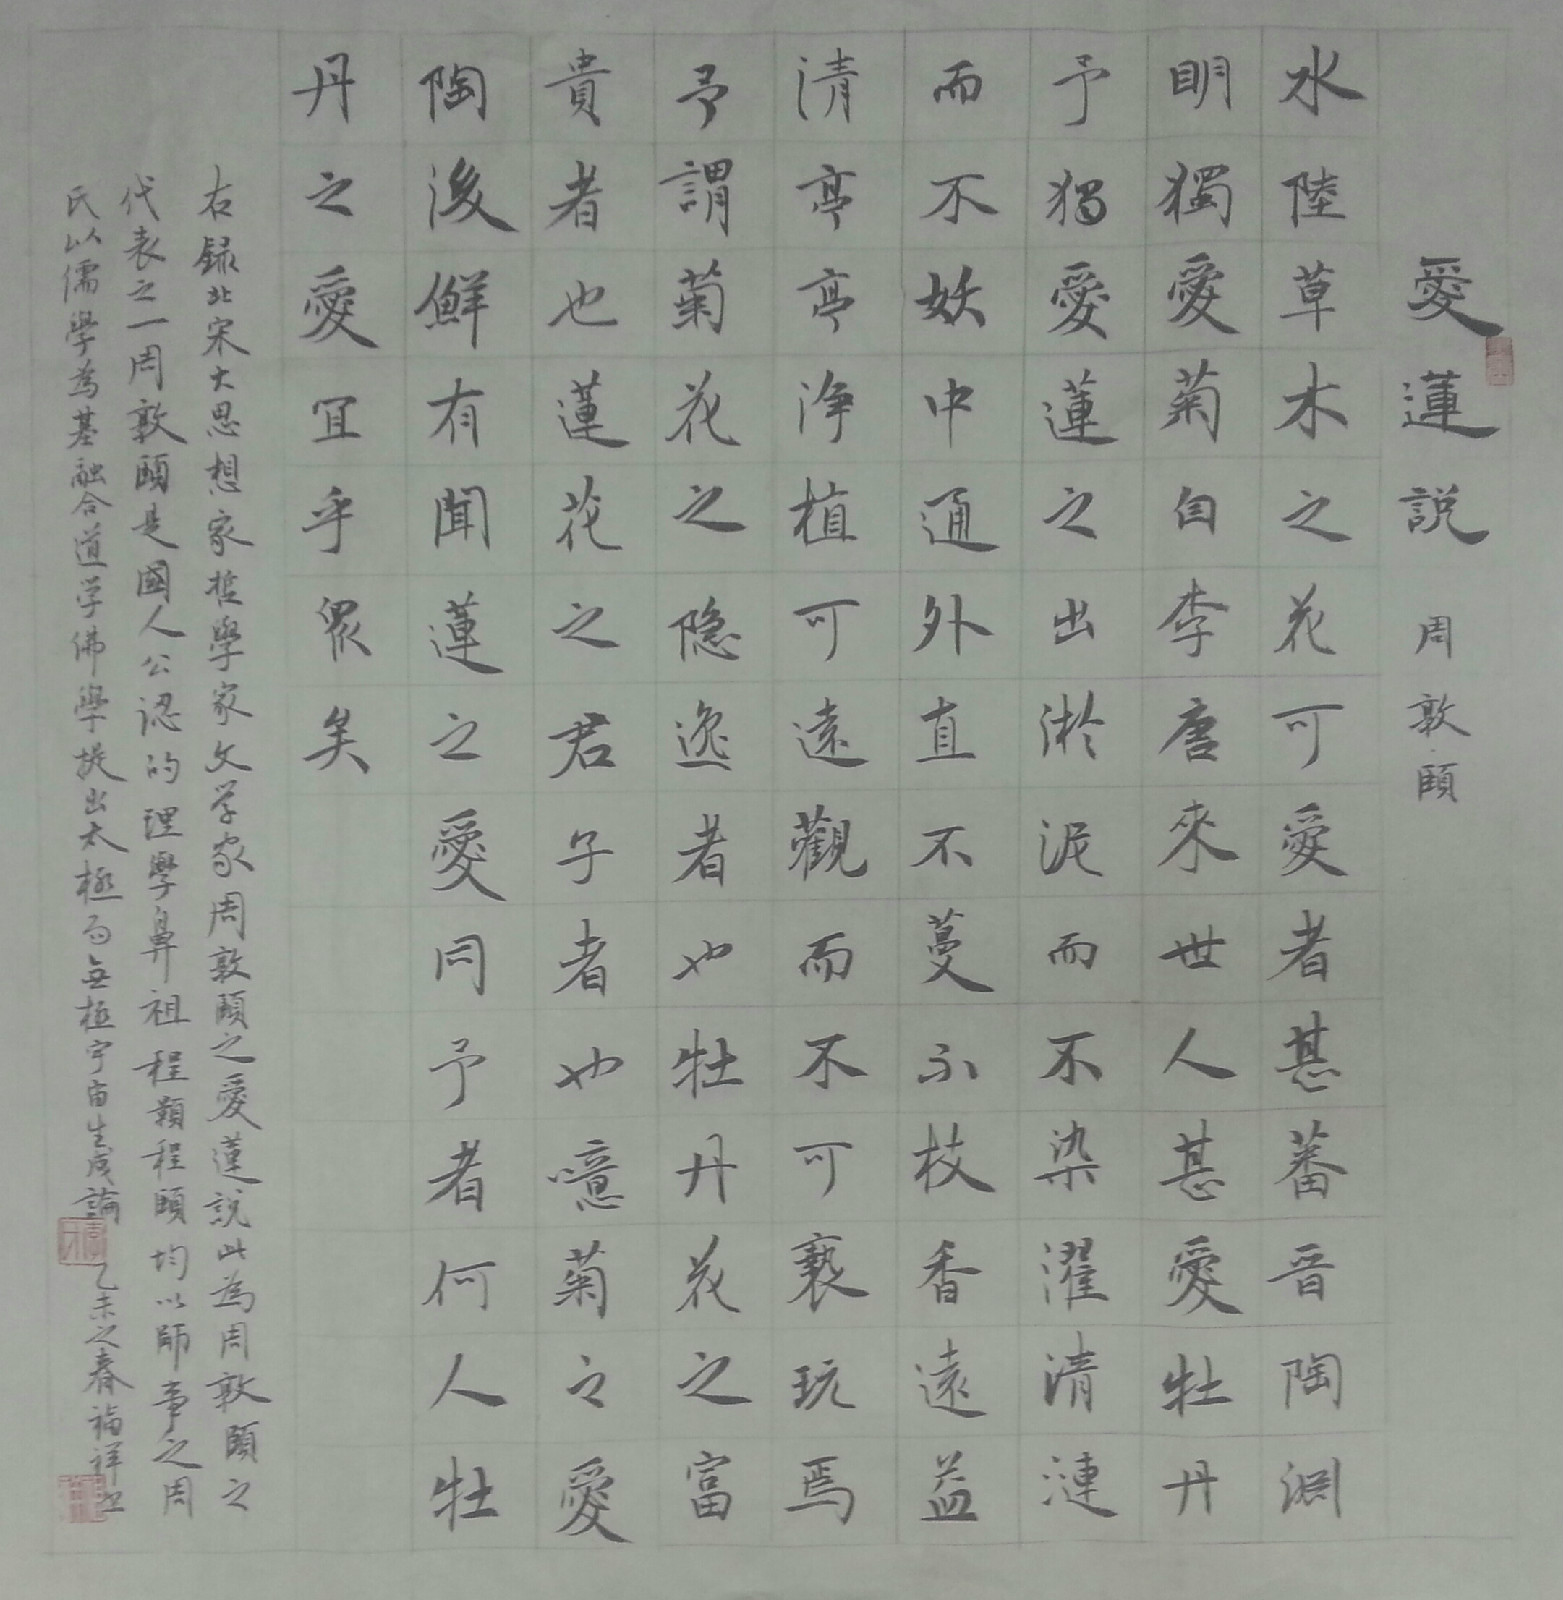 愛蓮說 周敦頤
水陸草木之花可愛者甚蕃晋陶淵
明獨愛菊自李唐來世人甚愛牡丹
予獨愛蓮之出淤泥而不染濯清漣
而不妖中通外直不蔓不枝香遠益
清亭亭淨植可遠觀而不可褻玩焉
予謂菊花之隐逸者也牡丹花之富
貴者也蓮花之君子者也噫菊之愛
陶後鮮有聞蓮之愛同予者何人牡
丹之愛宜乎眾矣
右録北宋大思想家哲學家文学家周敦頤之愛蓮說此為周敦頤之
代表之一周敦頤是國人公認的理學鼻祖程顥程頤均以師事之周
氏以儒學為基融合道学佛學提出太極而無極宇宙生成論 乙未之春福祥书